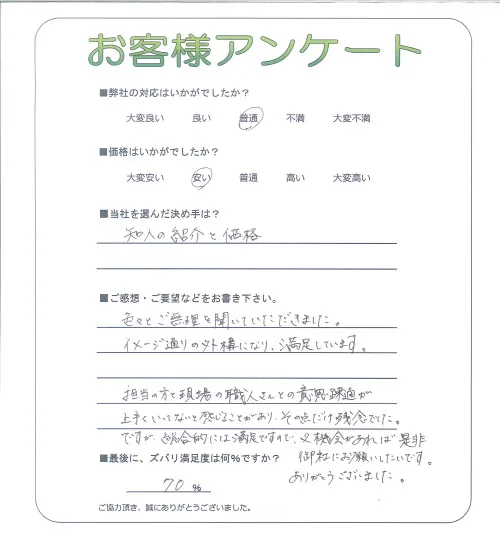 お客様アンケート
■弊社の対応はいかがでしたか？
大変良い 良い 普通 不満 大変不満
■価格はいかがでしたか？
大変安い 安い 普通 高い 大変高い
■当社を選んだ決め手は？
知人の紹介と価格
■ご感想・ご要望などをお書き下さい。
色々とご無理を聞いていただきました。
イメージ通りの外構になり、満足しています。
担当の方と現場の職人さんとの意思疎通が
上手くいってないと感じることがあり、その点だけ残念でした。
ですが、総合的には満足ですので、又機会があれば是非
御社にお願いしたいです。
ありがとうございました。
■最後に、ズバリ満足度は何％ですか？
70 %
ご協力頂き、誠にありがとうございました。